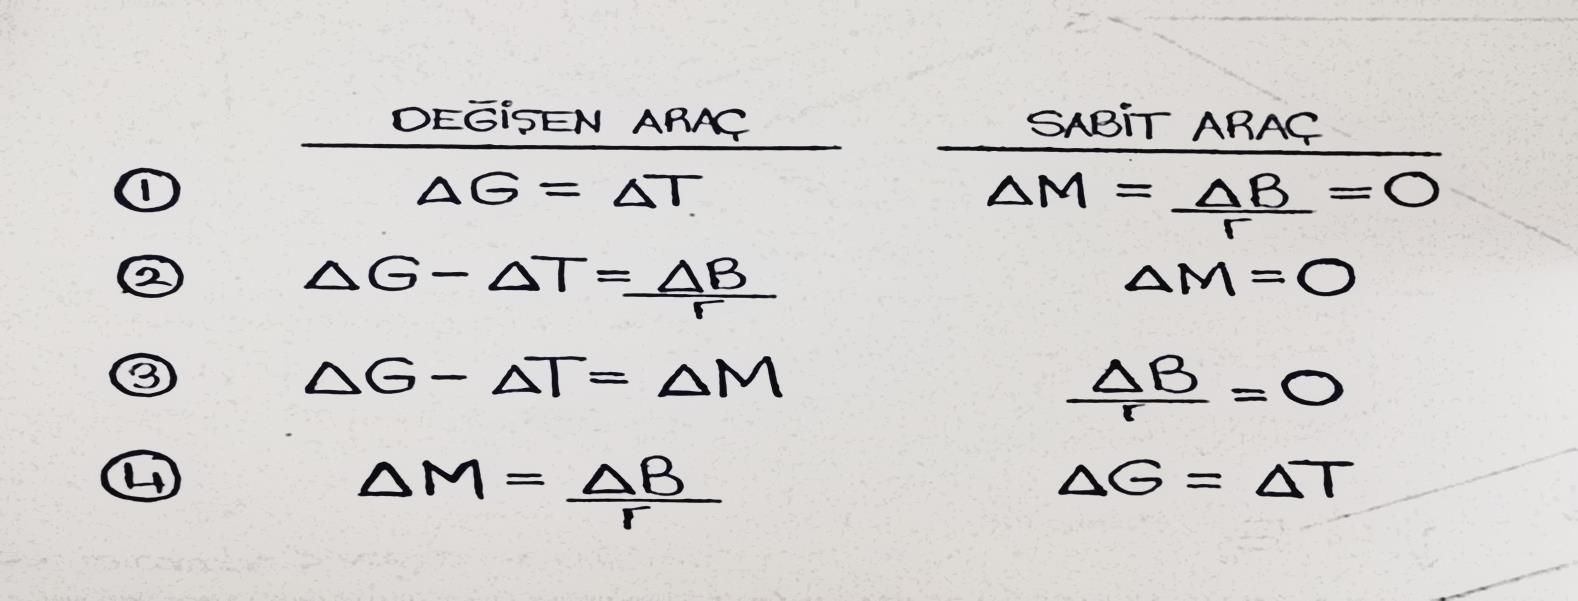 DEĞİŞEN ARAÇ SABİT ARAÇ
① ΔG = ΔT ΔM = ΔB/r = 0
② ΔG - ΔT = ΔB/r ΔM = 0
③ ΔG - ΔT = ΔM ΔB/r = 0
④ ΔM = ΔB/r ΔG = ΔT